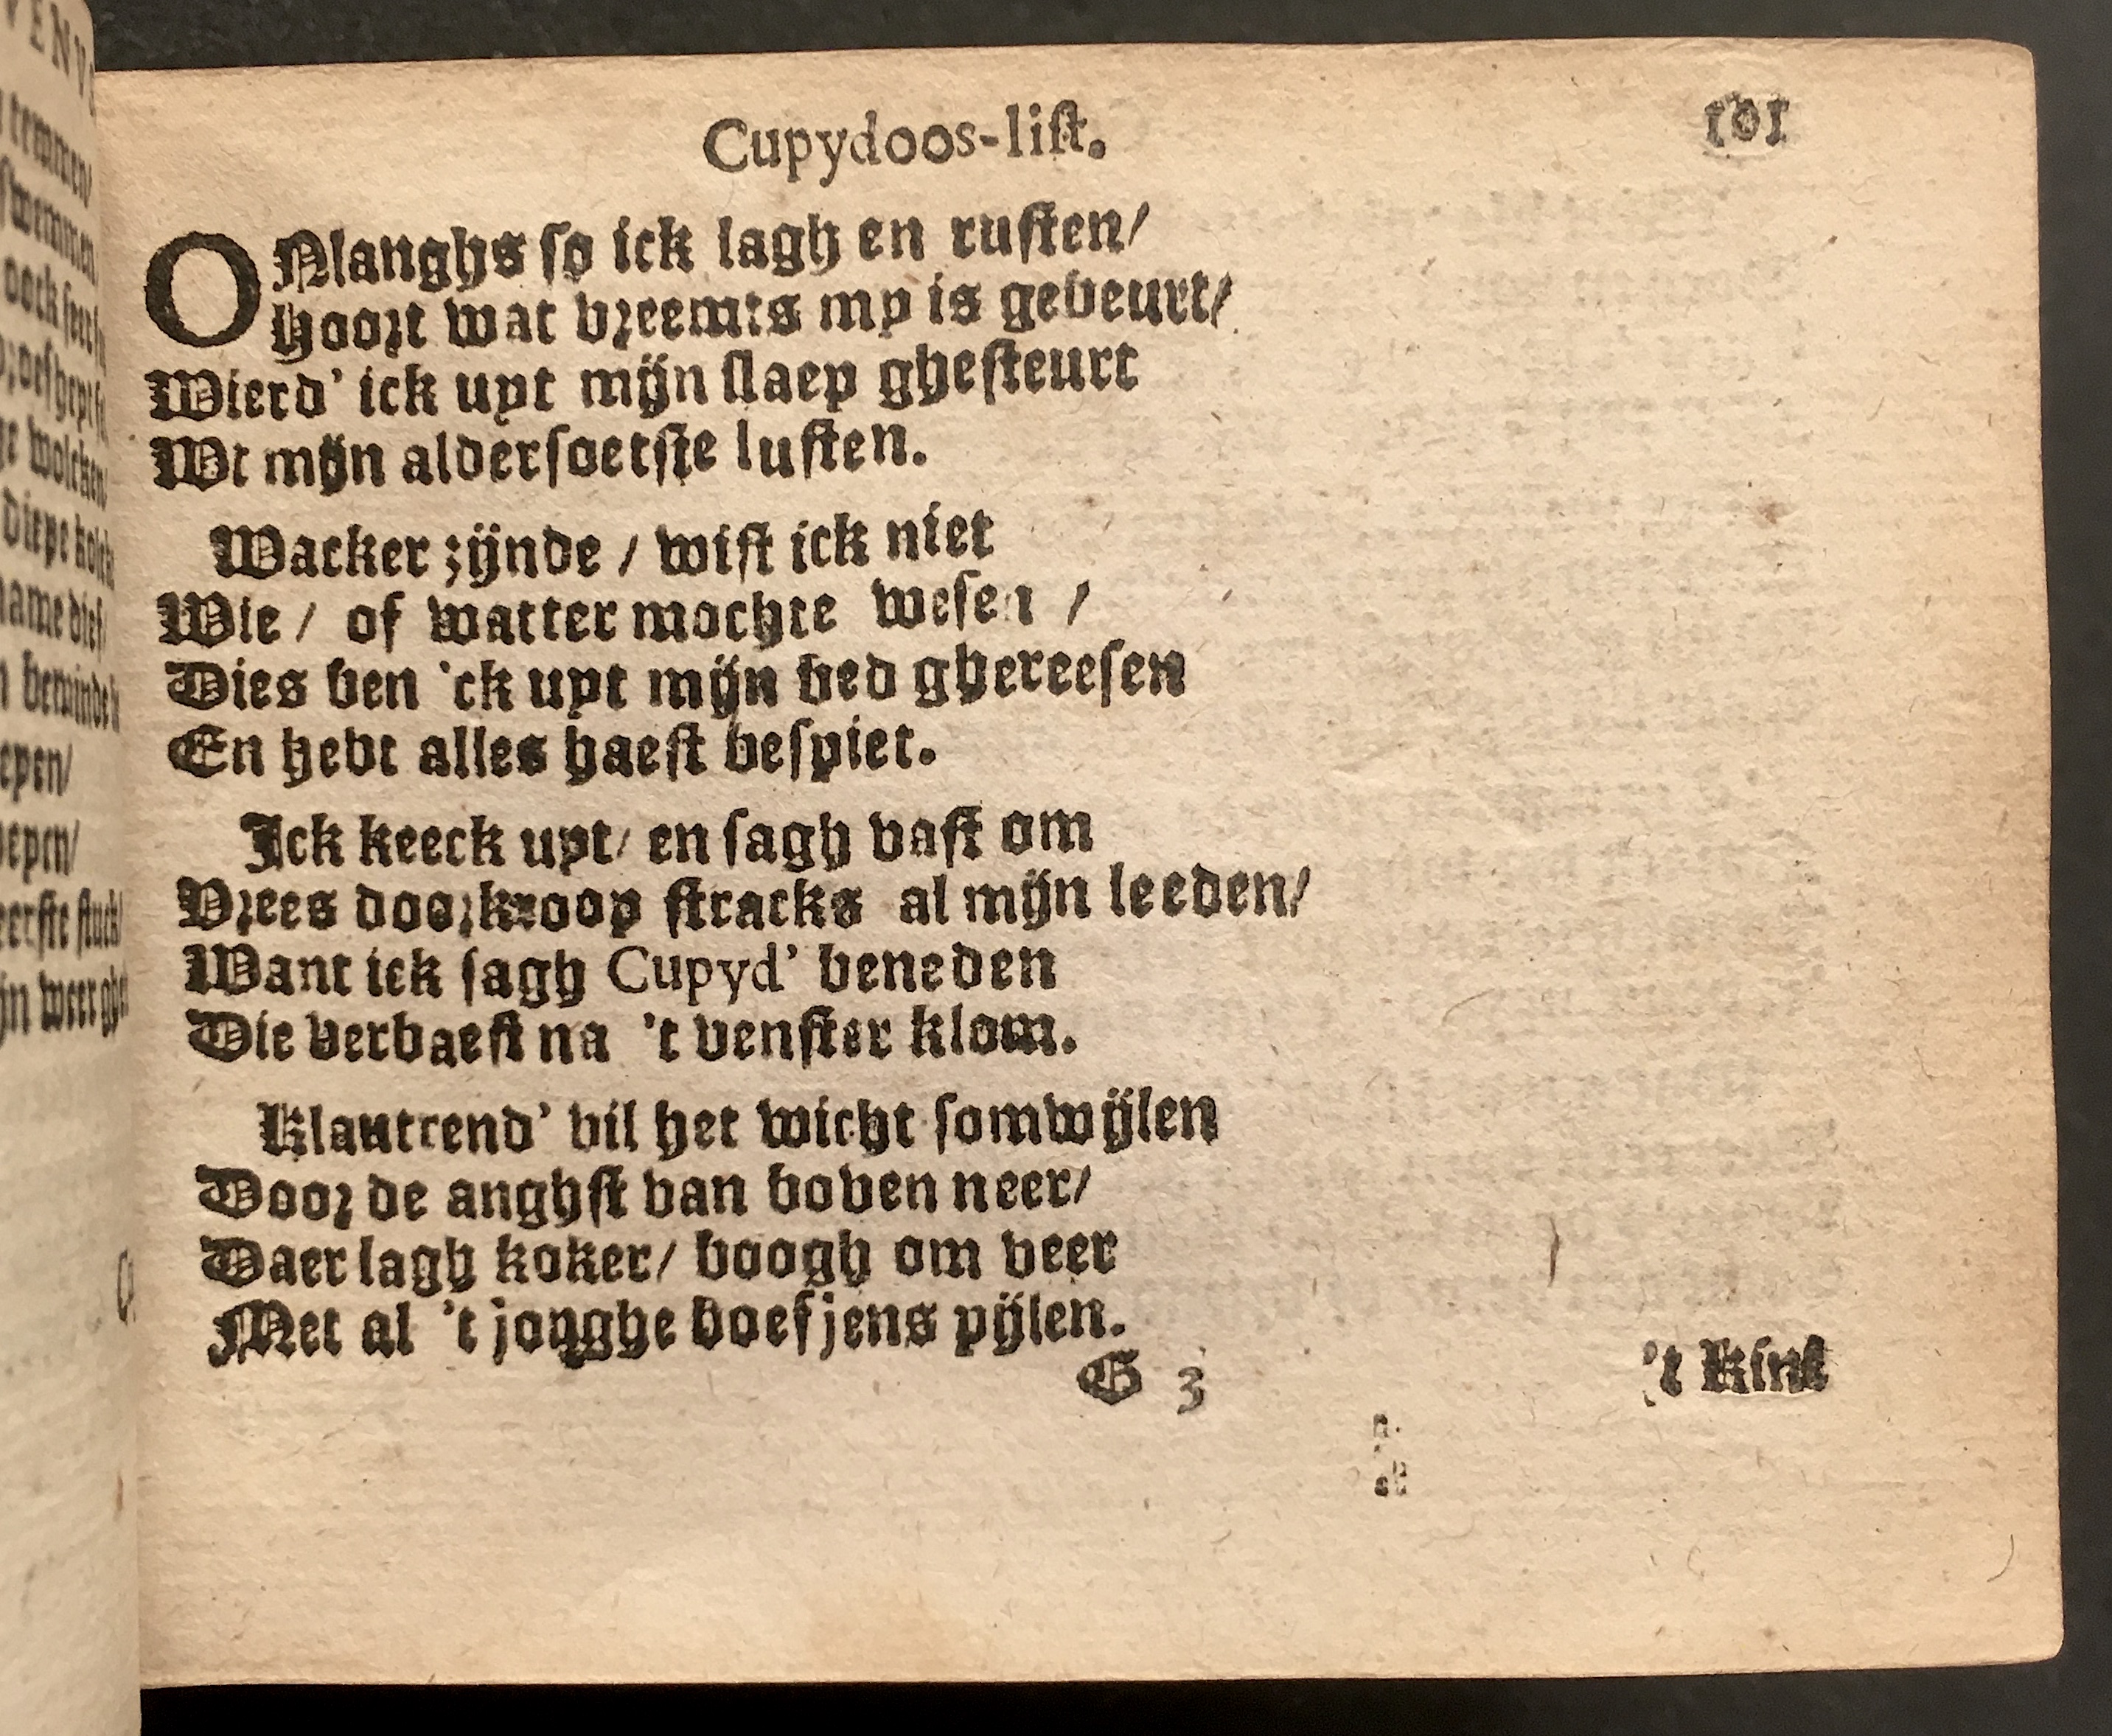 Cupydoos-liſt. 101
ONlanghs ſo ick lagh en ruſten/
Hoort wat vreemts my is gebeurt/
Wierd' ick uyt mijn ſlaep gheſteurt
Wt mijn alderſoetſte luſten.
Wacker zijnde / wiſt ick niet
Wie / of watter mochte weſen /
Dies ben 'ck uyt mijn bed ghereeſen
En hebt alles haeſt beſpiet.
Ick keeck uyt/ en ſagh vaſt om
Vrees doorkroop ſtracks al mijn leeden/
Want ick ſagh Cupyd' beneden
Die verbaeſt na 't venſter klom.
Klautrend' vil het wicht ſomwijlen
Door de anghſt van boven neer/
Daer lagh koker/ boogh om veer
Met al 't jonghe boefjens pijlen.
G 3 't Kint